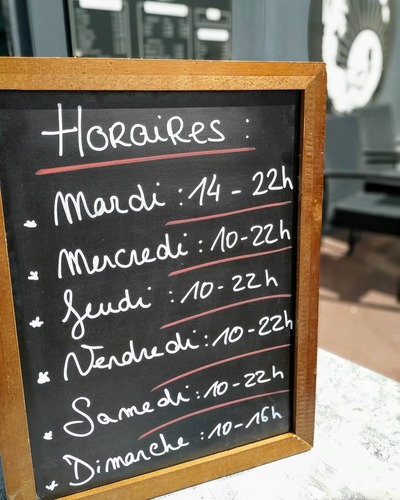 Horaires :
* Mardi : 14 - 22h
* Mercredi : 10-22h
* Jeudi : 10-22h
* Vendredi : 10-22h
* Samedi : 10-22h
* Dimanche : 10-16h